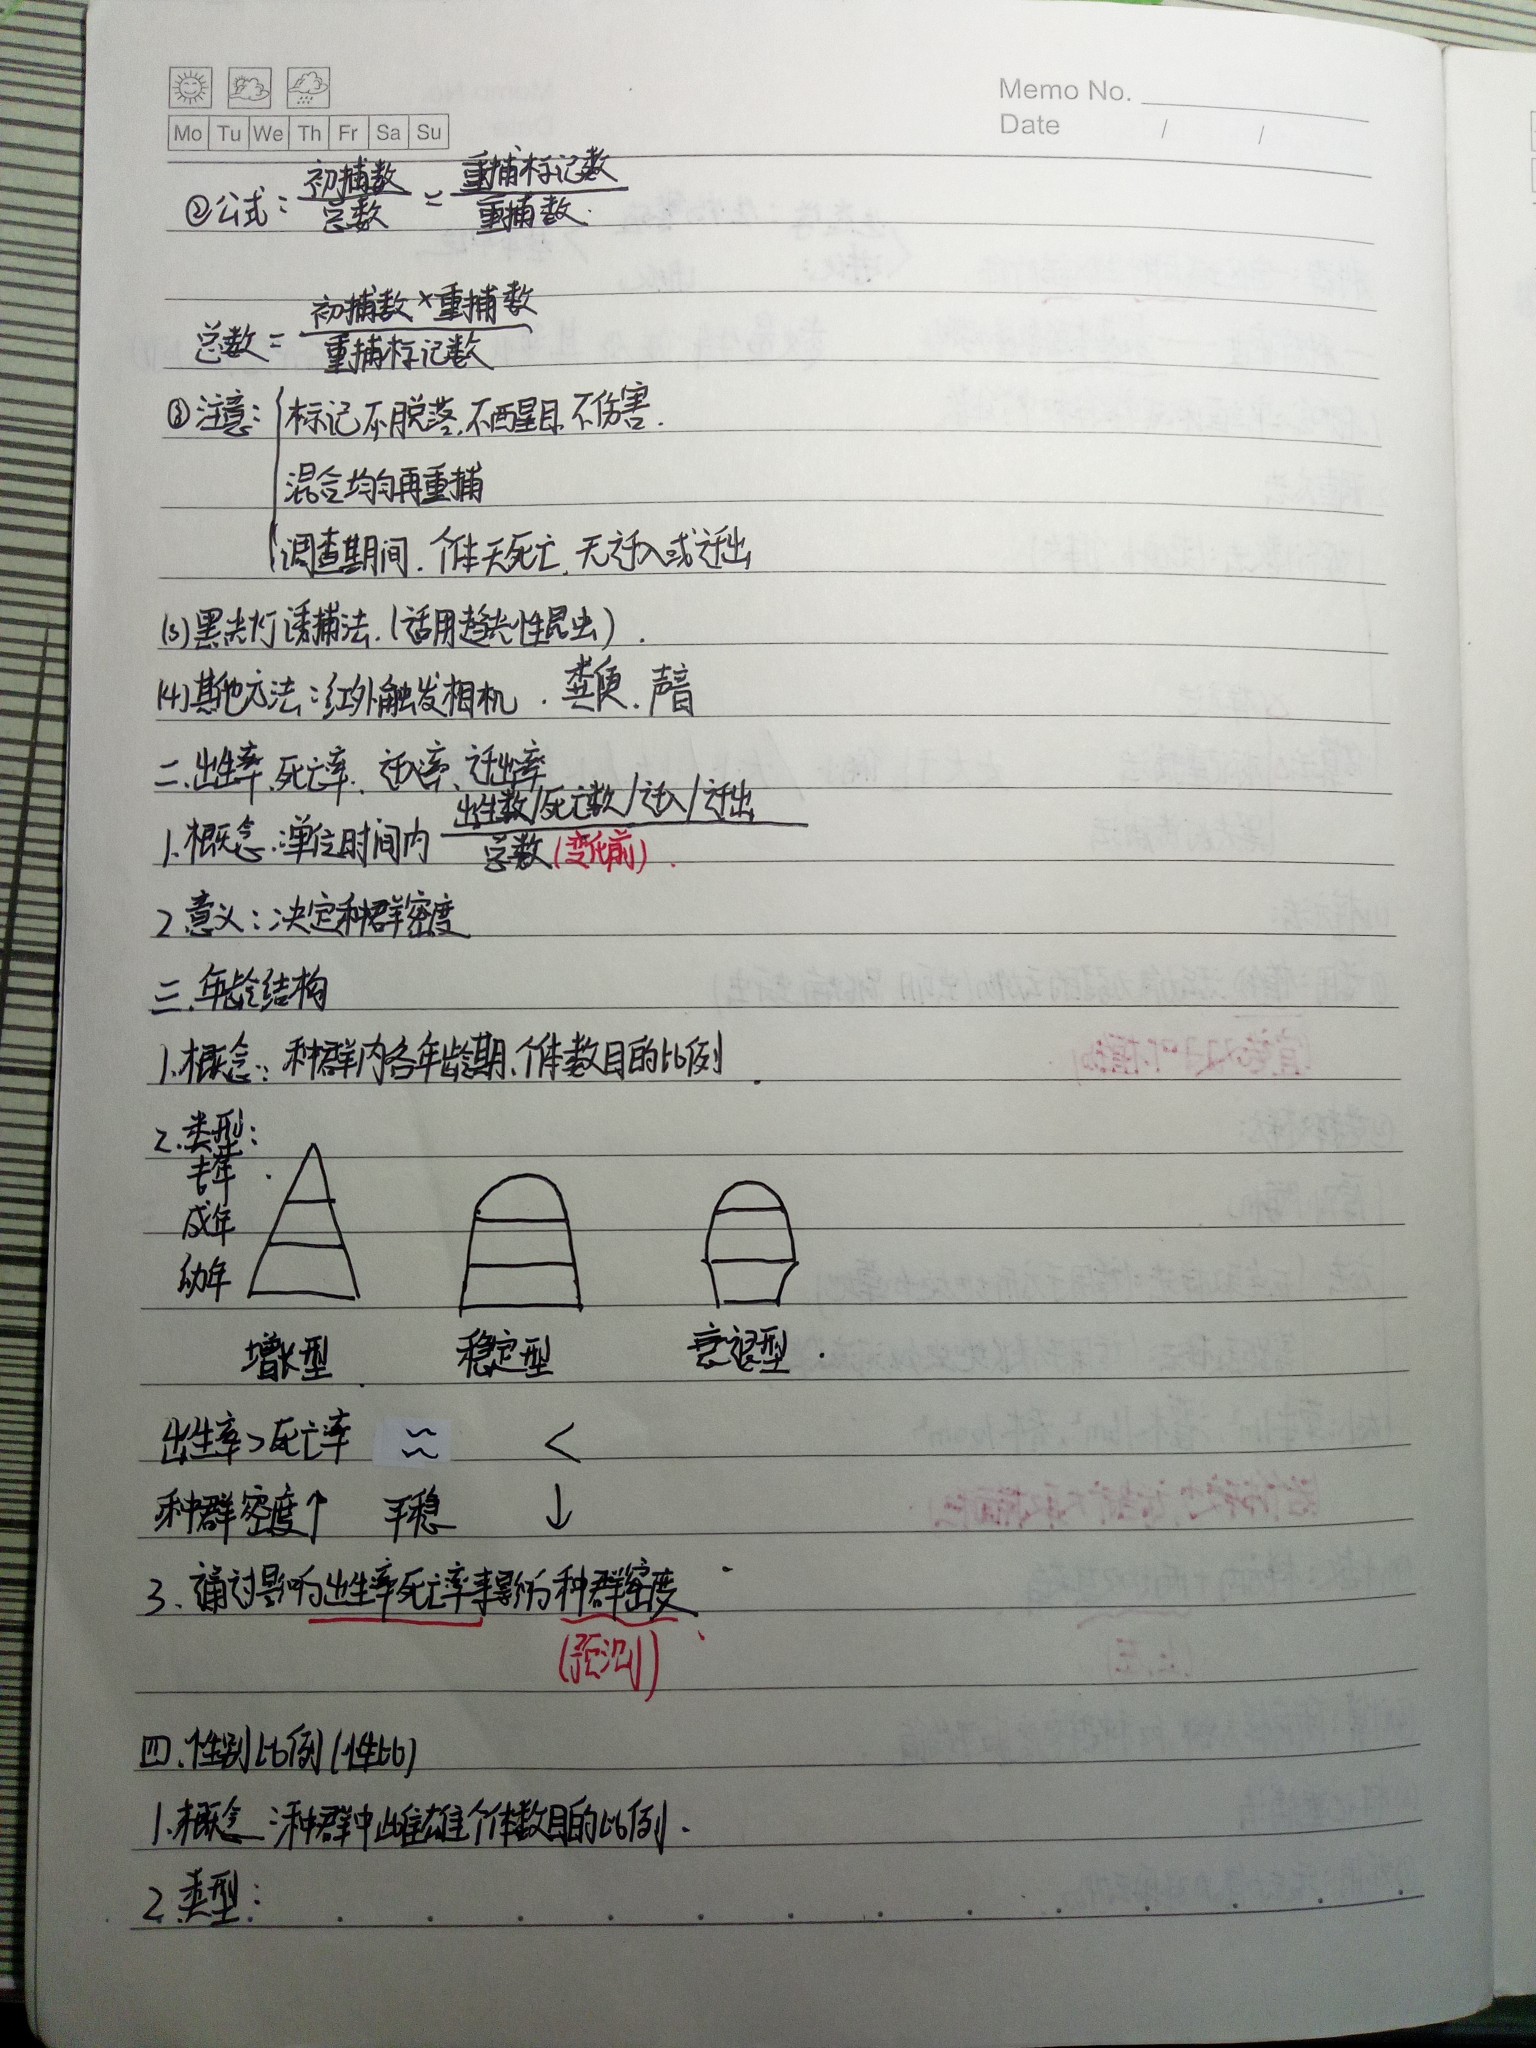 Memo No.
Mo Tu We Th Fr Sa Su
Date / /
②公式：初捕数/总数 = 重捕标记数/重捕数.
总数 = 初捕数×重捕数/重捕标记数
③注意：标记不脱落.不醒目.不伤害.
混合均匀再重捕
调查期间.个体无死亡.无迁入或迁出
(3)黑光灯诱捕法.(适用趋光性昆虫).
(4)其他方法：红外触发相机.粪便.声音
二.出生率、死亡率、迁入率、迁出率
1.概念：单位时间内 出生数/死亡数/迁入/迁出
总数(变化前).
2.意义：决定种群密度
三.年龄结构
1.概念：种群内各年龄期.个体数目的比例.
2.类型：
老年
成年
幼年
增长型 稳定型 衰退型.
出生率>死亡率 ≈ <
种群密度↑ 平稳 ↓
3.通过影响出生率死亡率来影响种群密度
(预测)
四.性别比例(性比)
1.概念：种群中雌雄个体数目的比例.
2.类型：